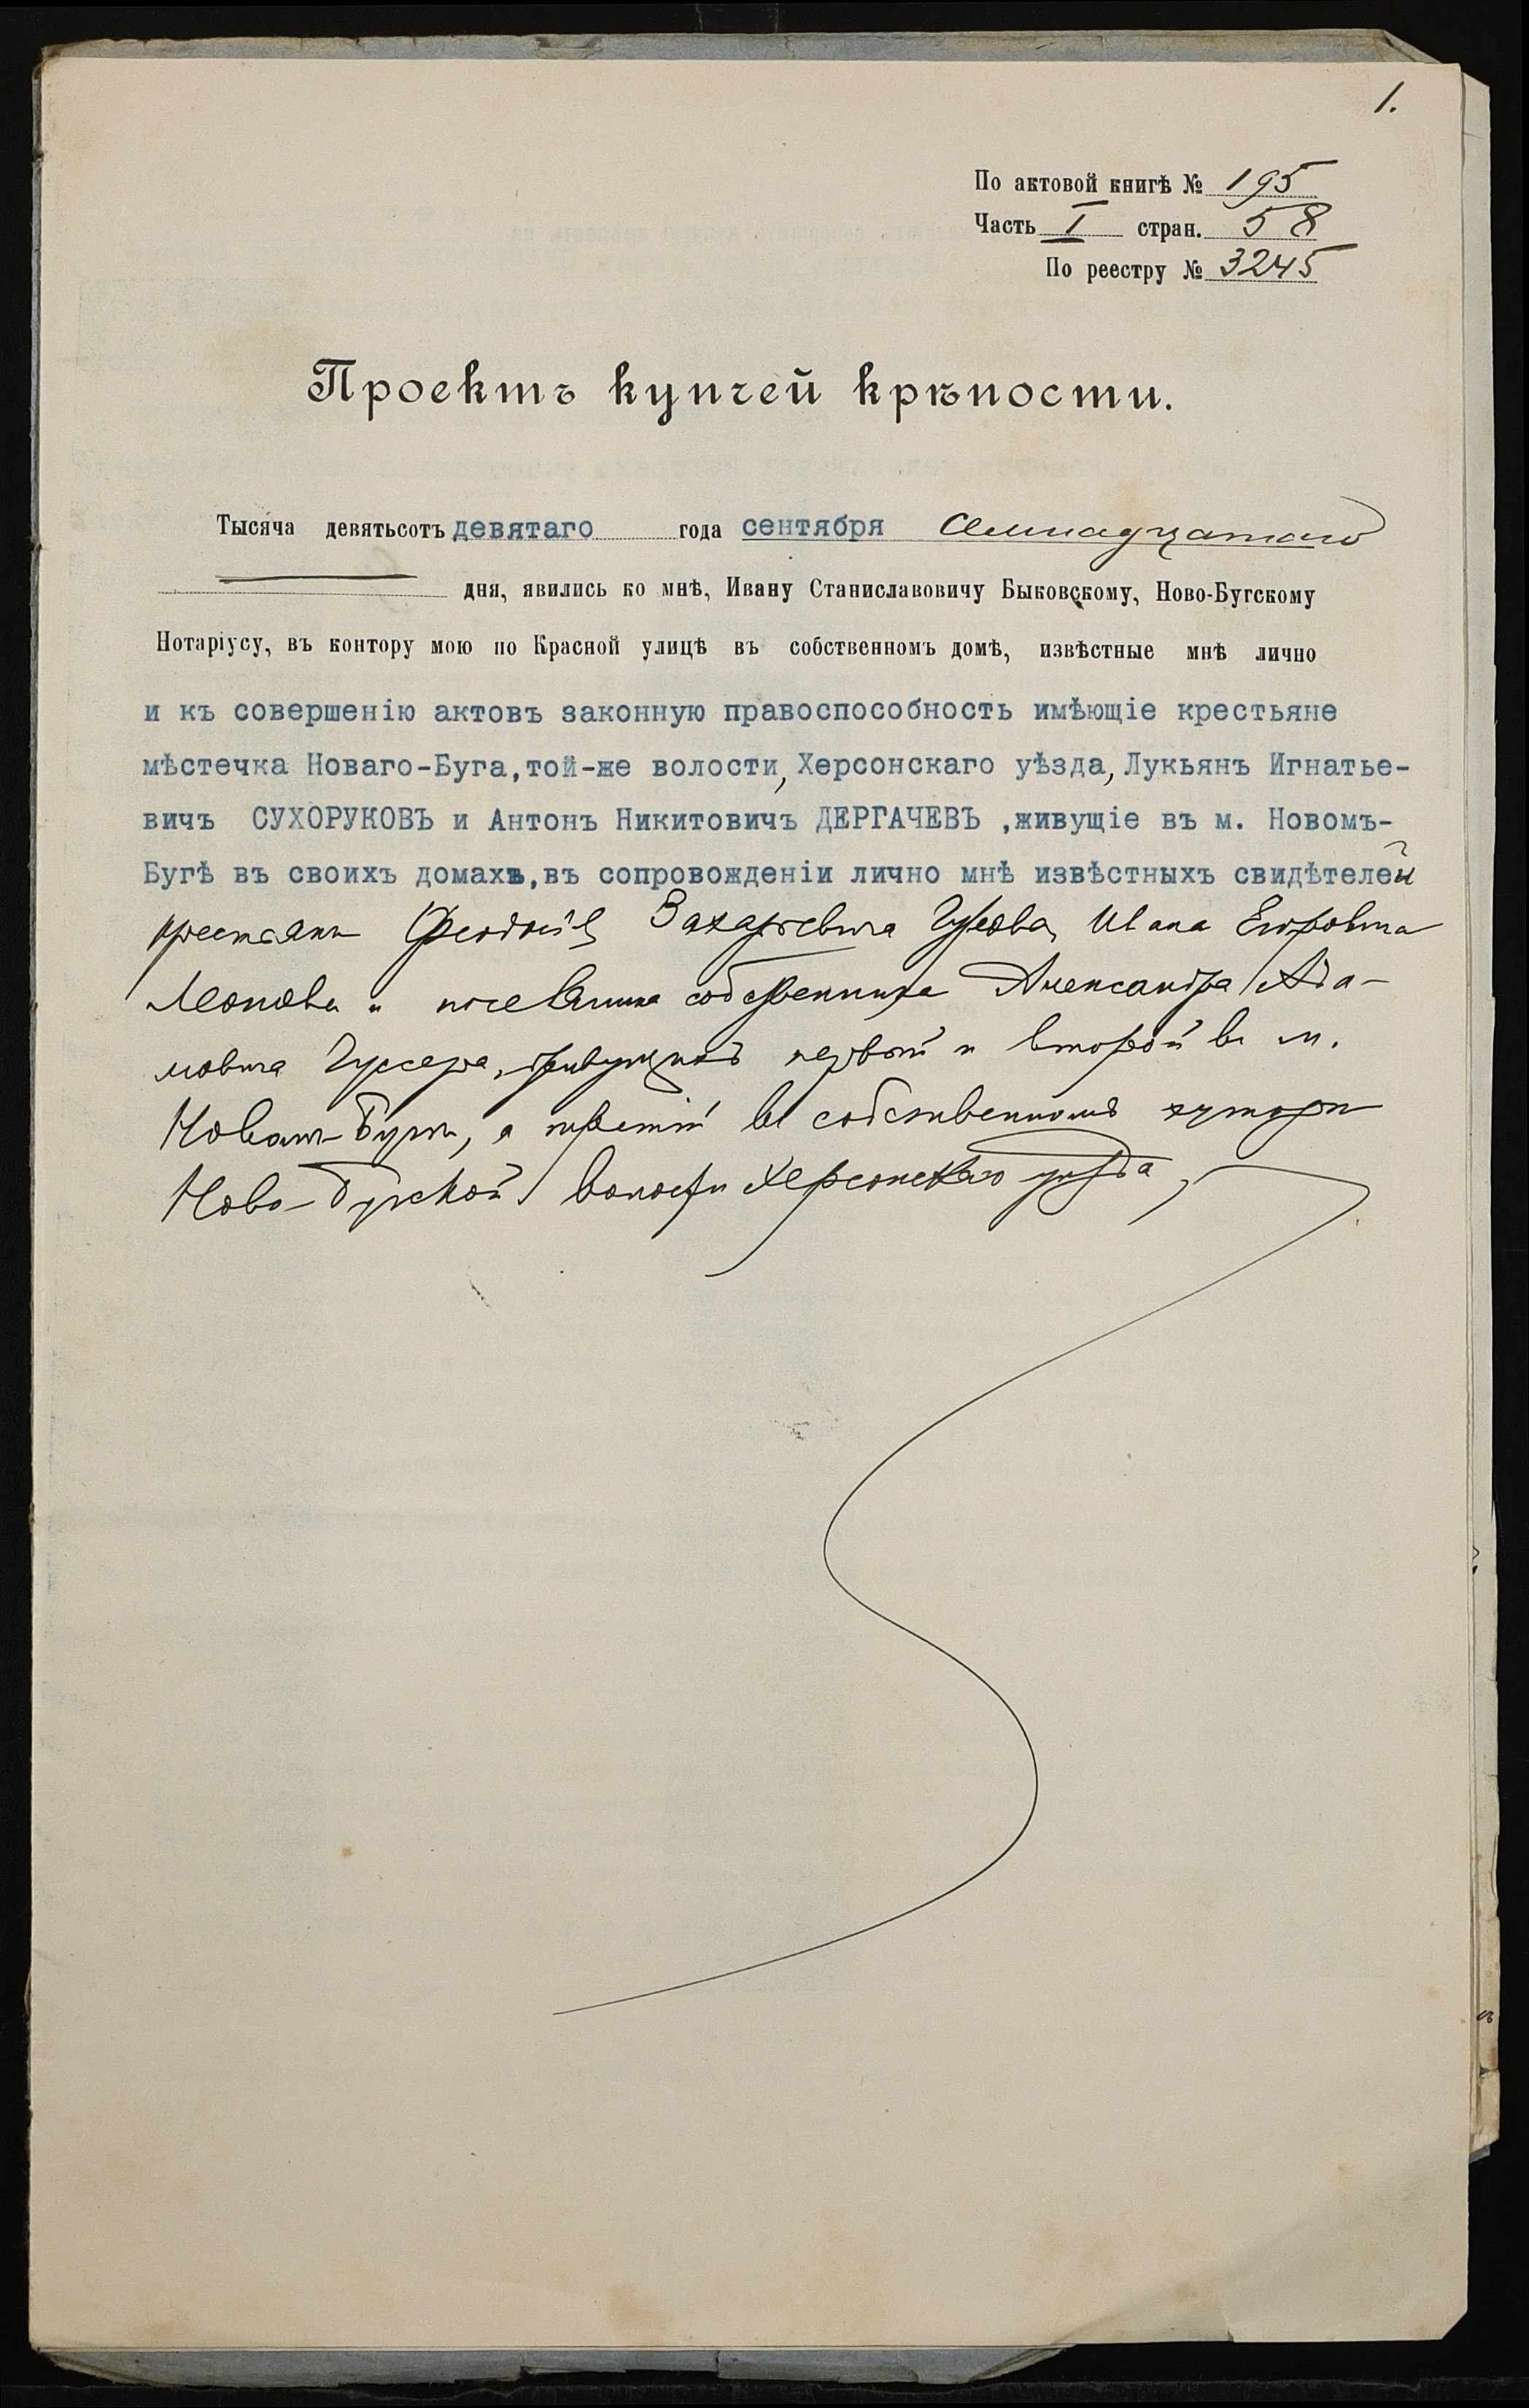 1.
По актовой книгѣ № 195
Часть I стран. 58
По реестру № 3245
Проектъ купчей крѣпости.
Тысяча девятьсотъ девятаго года сентября семнадцатаго
дня, явились ко мнѣ, Ивану Станиславовичу Быковскому, Ново-Бугскому
Нотаріусу, въ контору мою по Красной улицѣ въ собственномъ домѣ, извѣстные мнѣ лично
и къ совершенію актовъ законную правоспособность имѣющіе крестьяне
мѣстечка Новаго-Буга,той-же волости, Херсонскаго уѣзда, Лукьянъ Игнатье-
вичъ СУХОРУКОВЪ и Антонъ Никитовичъ ДЕРГАЧЕВЪ ,живущіе въ м. Новомъ-
Бугѣ въ своихъ домахъ,въ сопровожденіи лично мнѣ извѣстныхъ свидѣтелей
крестьянъ Захарьевича Ивана Егоровича
и поселянина собственника Александра Ада-
мовича Гуссера, живущихъ первый и второй въ м.
Новомъ-Бугѣ, а третій въ собственномъ хуторѣ
Ново-Бугской волости Херсонскаго уѣзда,